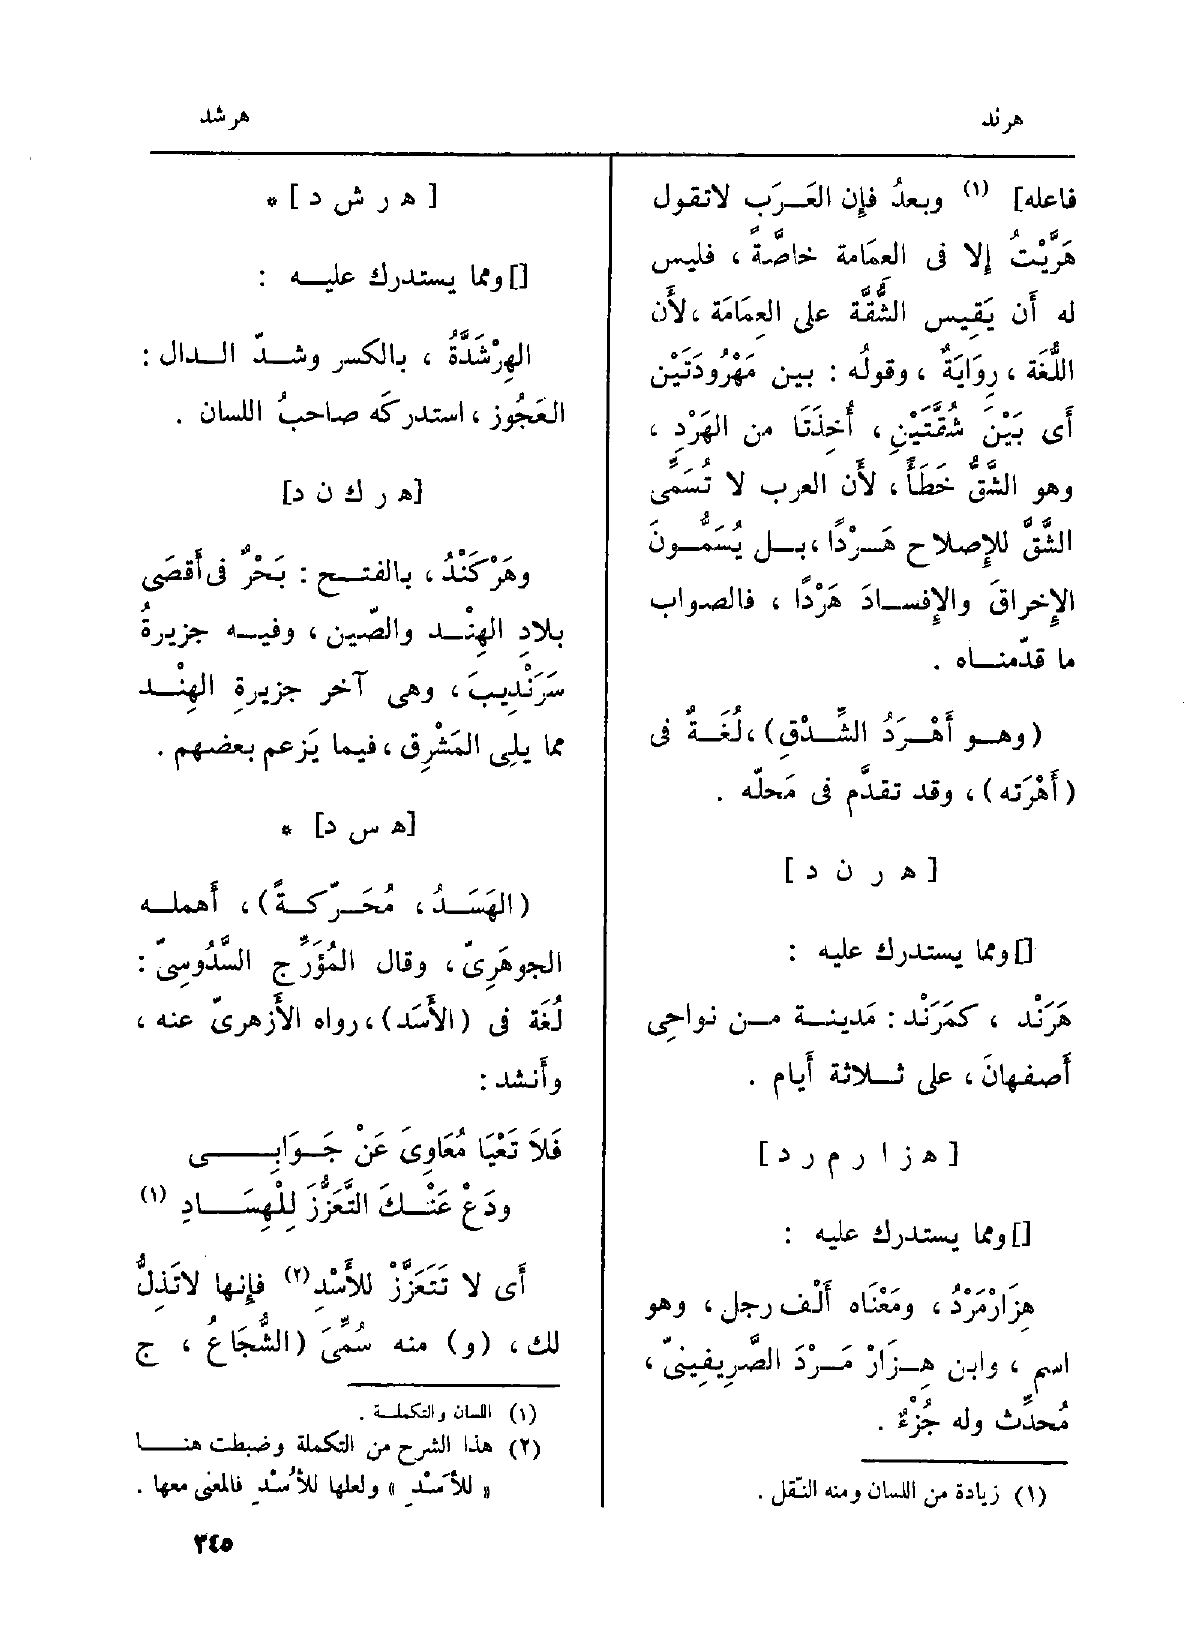 هرند
هرشد
فاعله] (١) وبعدُ فإن العَـرَب لاتقول
هَرَّيْتُ إلا فى العمَامة خاصَّةً ، فليس
له أن يَقِيس الشُّقَّة على العِمَامَة ، لأَن
اللُّغَة ، رِوَايَةٌ ، وقولُه : بين مَهْرُودَتَيْن
أى بَيْنَ شُقَّتَيْنِ ، أُخِذَتَا من الهَرْدِ ،
وهو الشَّقُّ خَطَأٌ ، لأَن العرب لا تُسَمِّى
الشَّقَّ للإِصلاح هَـرْدًا ، بـل يُسَمُّـونَ
الإِخراقَ والإِفسـادَ هَرْدًا ، فالصواب
ما قدّمنـاه .
(وهـو أَهْـرَدُ الشِّـدْقِ) ، لُغَـةٌ فى
(أَهْرَته) ، وقد تقدَّم فى مَحلّه .
[ ه ر ن د ]
[] ومما يستدرك عليه :
هَرَنْد ، كمَرَنْد : مَدينـة مـن نواحِى
أَصفهانَ ، على ثـلاثة أَيام .
[ ه ز ا ر م ر د ]
[] ومما يستدرك عليه :
هِزَارْمَرْدُ ، ومَعْنَاه أَلْف رجل ، وهو
اسم ، وابن هِـزَارْ مَـرْدَ الصَّرِيفِينىّ ،
مُحدِّث وله جُزْءٌ .
(١) زيادة من اللسان ومنه النّقل .
[ ه ر ش د ] *
[] ومما يستدرك عليـه :
الهِرْشَدَّةُ ، بالكسر وشـدّ الـدال :
العَجُوز ، استدركَه صاحبُ اللسان .
[ ه ر ك ن د ]
وهَرْكَنْدُ ، بالفتـح : بَحْرٌ فى أَقصَى
بلادِ الهِنْـد والصّين ، وفيـه جزيرةُ
سَرَنْدِيبَ ، وهى آخر جزيرةِ الهِنْـد
مما يلِى المَشْرِق ، فيما يَزعم بعضهم .
[ ه س د ] *
(الهَسَـدُ ، مُحَـرّكـةً) ، أَهملـه
الجوهَرِىّ ، وقال المُؤَرِّج السَّدُوسِىّ :
لُغَة فى (الأَسَد) ، رواه الأَزهرىّ عنه ،
وأَنشد :
فَلاَ تَعْيَا مُعَاوِىَ عَنْ جَـوَابِـــى
ودَعْ عَنْـكَ التَّعَزُّزَ لِلْهِسَـادِ (١)
أَى لا تَتَعَزَّزْ للأَسْدِ (٢) فإِنها لاتَذلُّ
لك ، (و) منه سُمِّىَ (الشُّجَاعُ ، ج
(١) اللسان والتكملـة .
(٢) هذا الشرح من التكملة وضبطت هنـا
« للأَسْدِ » ولعلها للأُسْدِ فالمعنى معها .
٣٤٥